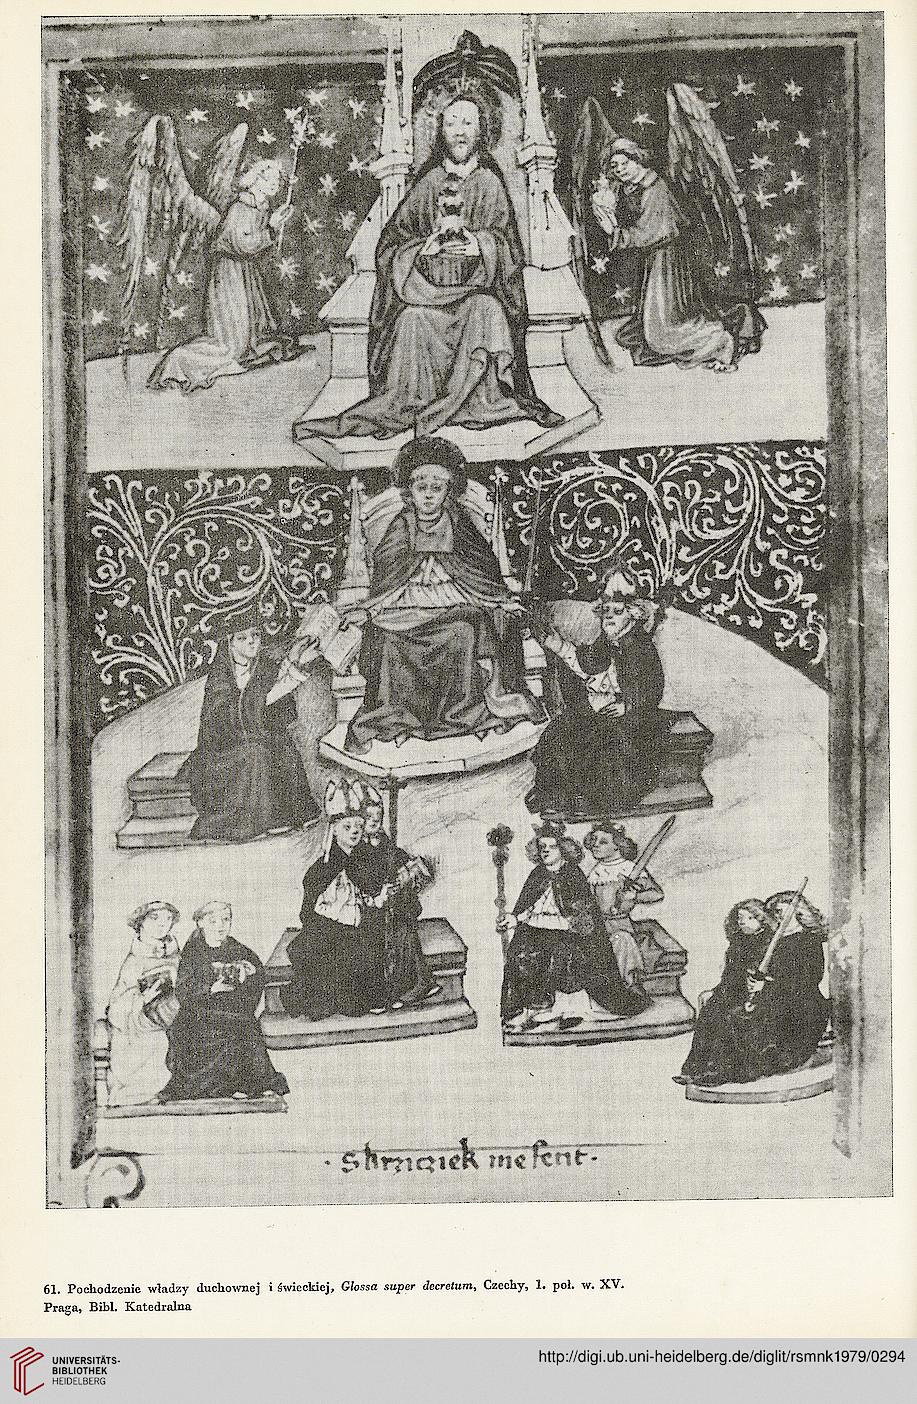 61. Pochodzenie władzy duchownej i świeckiej, Glossa super decretum, Czechy, 1. poł. w. XV.
Praga, Bibl. Katedralna
UNIVERSITÄTS-
BIBLIOTHEK
HEIDELBERG
http://digi.ub.uni-heidelberg.de/diglit/rsmnk1979/0294